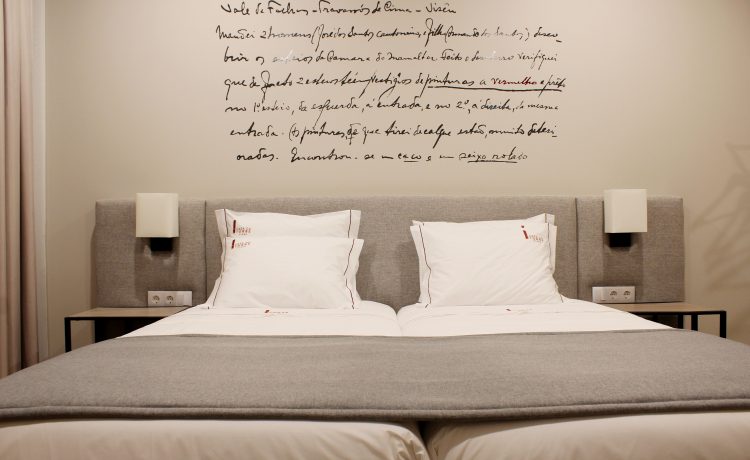 Vale de Fachas - Travassós de Cima - Viseu
Mandei 2 homens (José dos Santos cantoneiro, e filho Armando dos Santos) desco-
brir os esteios da Camara do Mamaltar. Feito o trabalho verifiquei
que de facto 2 esteios têm vestigios de pinturas a vermelho e preto
no 1º esteio, da esquerda, á entrada, e no 2º, á direita, da mesma
entrada. pinturas, de que tirei decalque estão, muito deteri-
oradas. Encontrou-se um caco e um seixo rolado